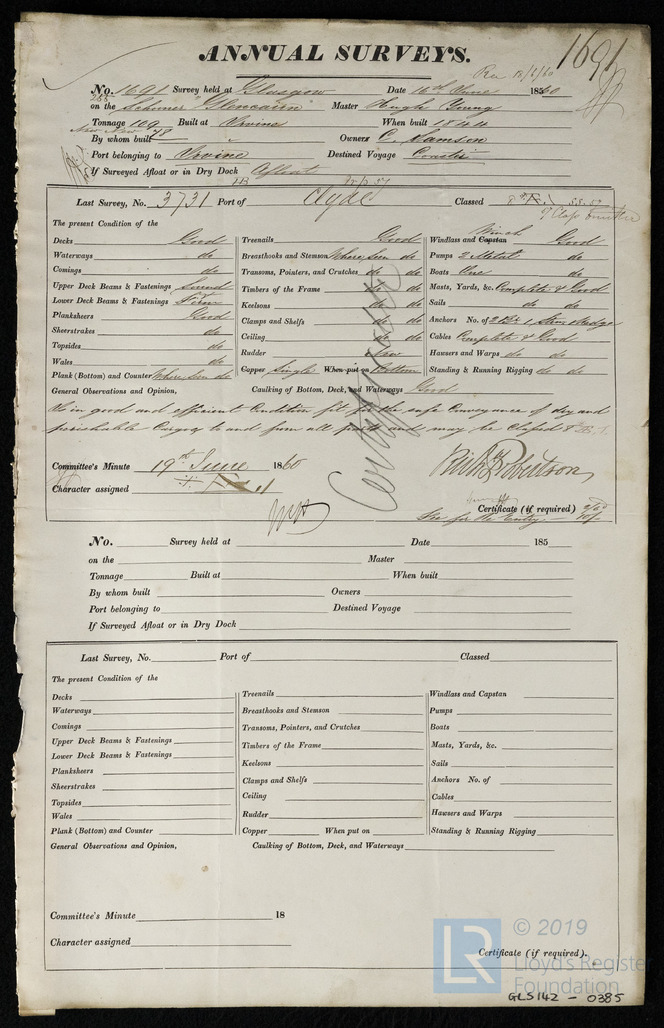 ANNUAL SURVEYS.
1691
Rec 18/6/60
No. 1691 Survey held at Glasgow Date 16th June 1860
on the Schooner "Glencairn" Master Hugh Young
Tonnage 109 Built at Irvine When built 1844
By whom built Owners C. Samson
Port belonging to Irvine Destined Voyage Coaster
If Surveyed Afloat or in Dry Dock Afloat
Last Survey, No. 3731 Port of Clyde Classed
The present Condition of the
Decks Good
Waterways do
Comings do
Upper Deck Beams & Fastenings Sound
Lower Deck Beams & Fastenings Firm
Planksheers Good
Sheerstrakes do
Topsides do
Wales do
Plank (Bottom) and Counter Where seen do
Treenails Good
Breasthooks and Stemson Where seen do
Transoms, Pointers, and Crutches do do
Timbers of the Frame do do
Keelsons do do
Clamps and Shelfs do do
Ceiling do do
Rudder
Copper Single When put on Bottom
Winch
Windlass and Capstan Good
Pumps 2 Metal do
Boats One do
Masts, Yards, &c. Complete & Good
Sails do do
Anchors No. of 2 Br. 1 Stm
Cables Complete & Good
Hawsers and Warps do do
Standing & Running Rigging do do
General Observations and Opinion, Caulking of Bottom, Deck, and Waterways Good
Is in good and efficient Condition fit for the safe Conveyance of dry and
perishable Cargoes to and from all ports and may be Classed
Committee's Minute 19th June 1860
Character assigned
Certificate (if required)
Fee for the Entry
No. Survey held at Date 185
on the Master
Tonnage Built at When built
By whom built Owners
Port belonging to Destined Voyage
If Surveyed Afloat or in Dry Dock
Last Survey, No. Port of Classed
The present Condition of the
Decks
Waterways
Comings
Upper Deck Beams & Fastenings
Lower Deck Beams & Fastenings
Planksheers
Sheerstrakes
Topsides
Wales
Plank (Bottom) and Counter
Treenails
Breasthooks and Stemson
Transoms, Pointers, and Crutches
Timbers of the Frame
Keelsons
Clamps and Shelfs
Ceiling
Rudder
Copper When put on
Windlass and Capstan
Pumps
Boats
Masts, Yards, &c.
Sails
Anchors No. of
Cables
Hawsers and Warps
Standing & Running Rigging
General Observations and Opinion, Caulking of Bottom, Deck, and Waterways
Committee's Minute 18
Character assigned
Certificate (if required).
LR © 2019
Lloyd's Register
Foundation
GLS142 - 0385